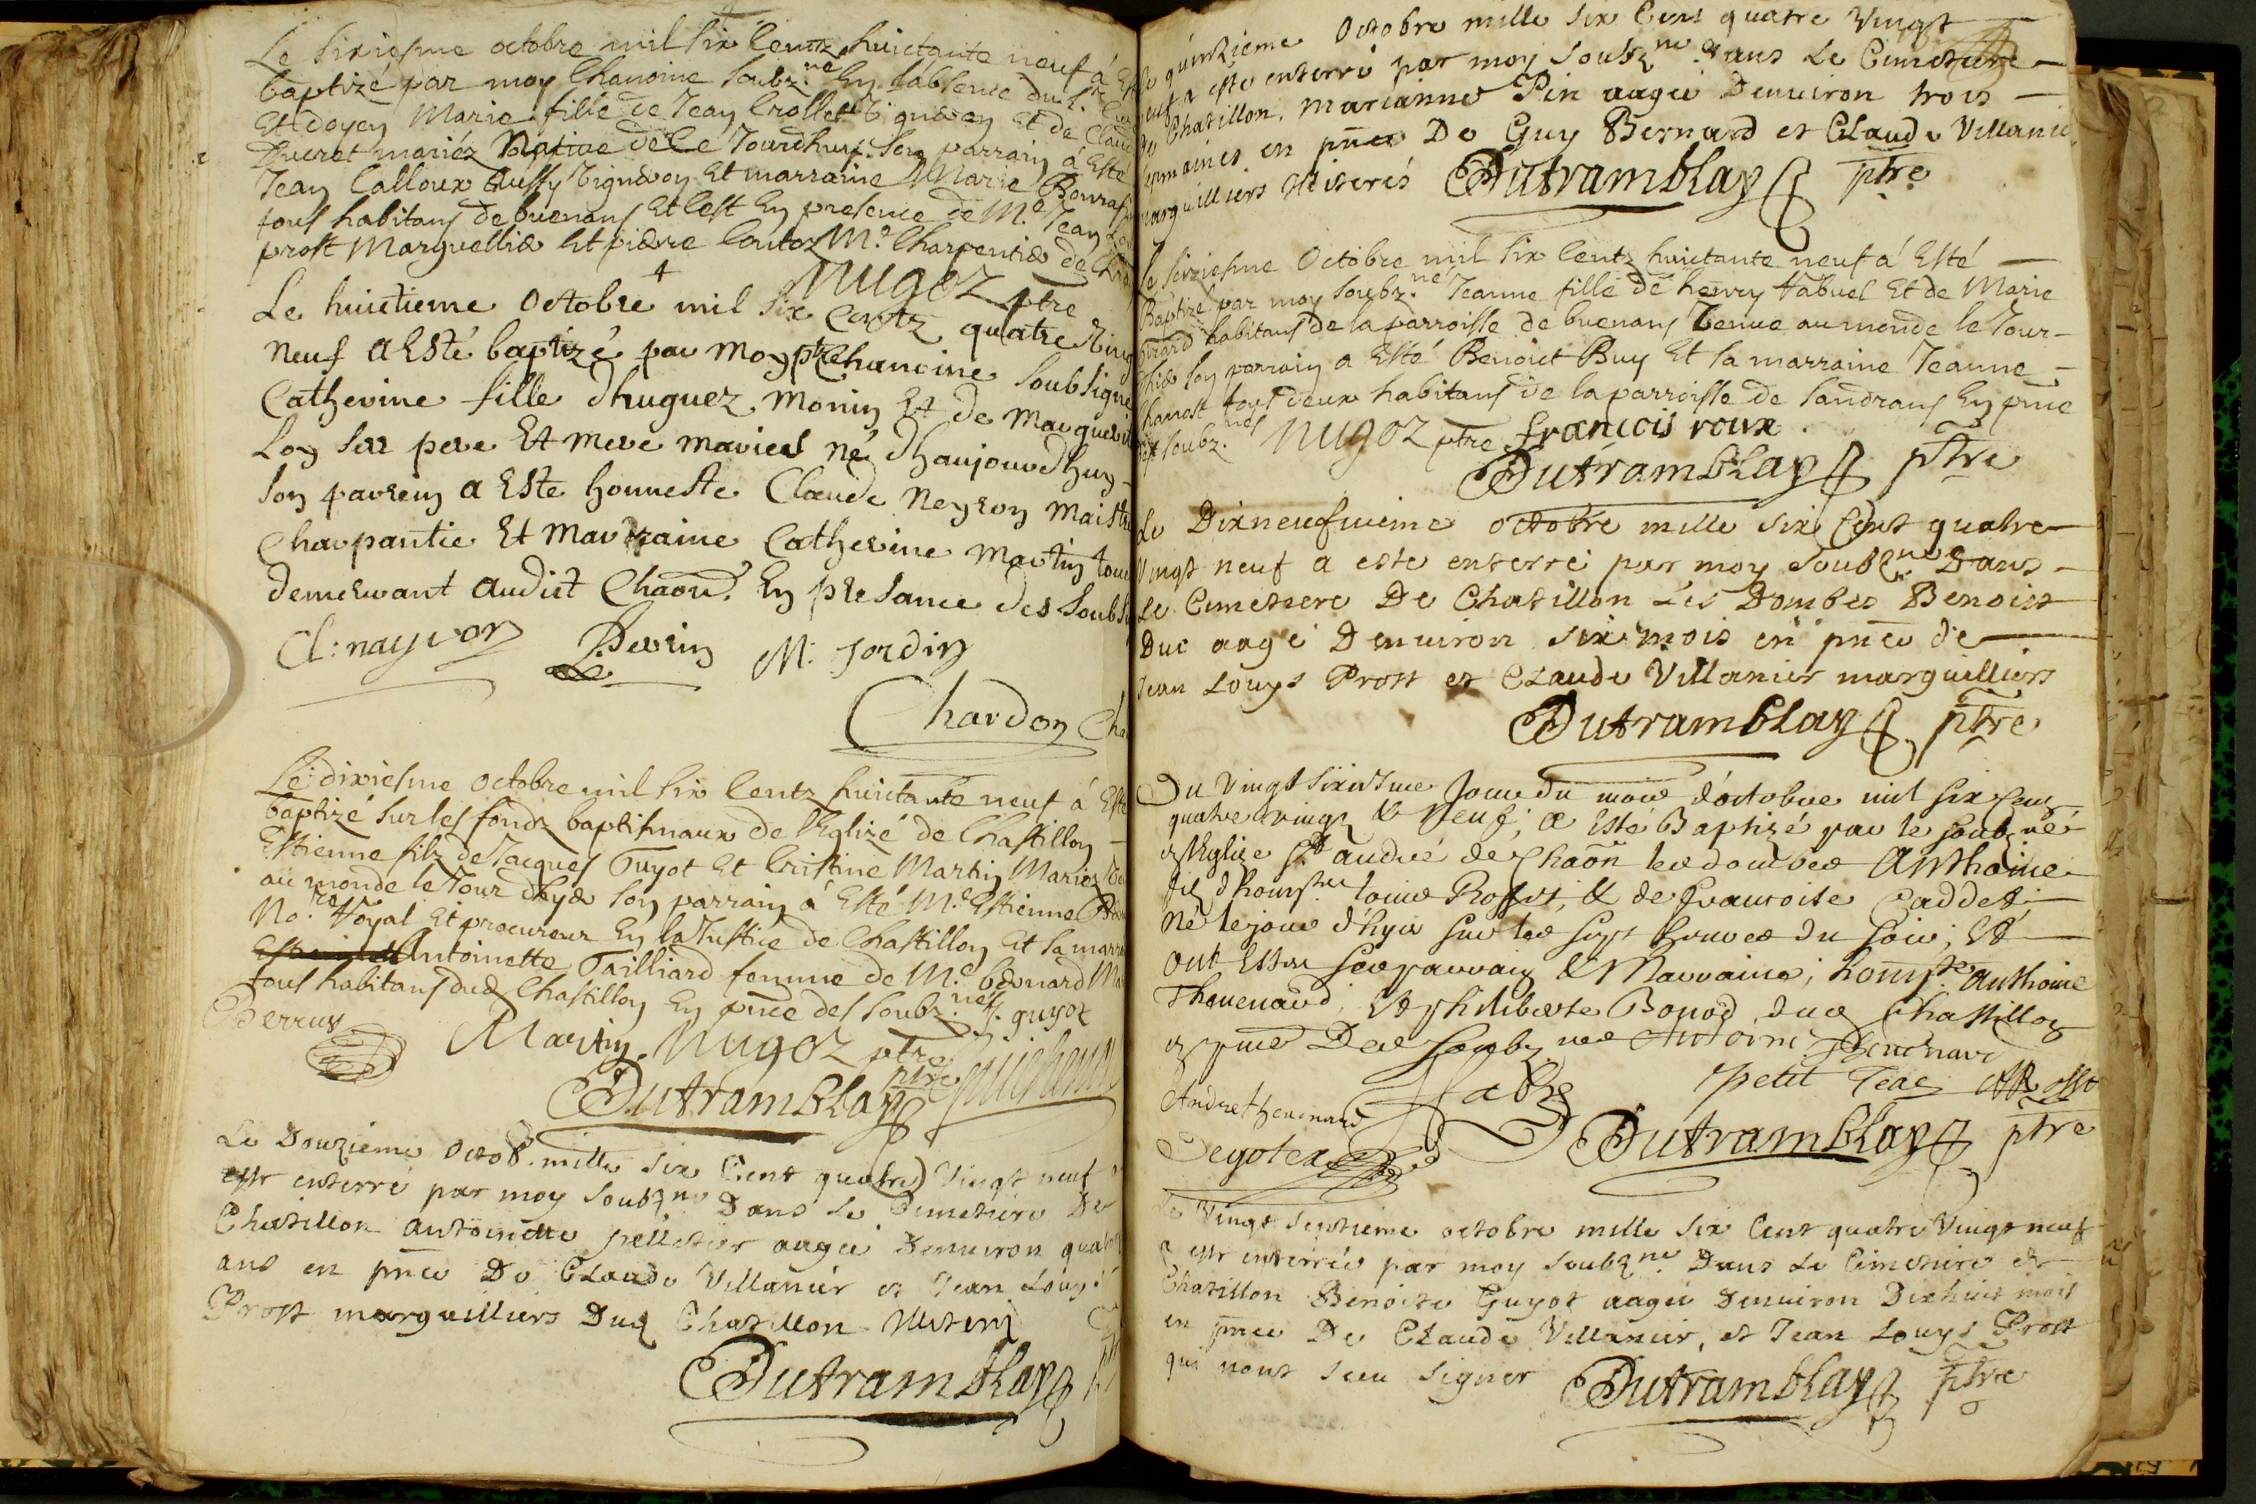 Le sixiesme octobre mil six Centz huictante neuf à Esté
baptizé par moy Chanoine soubz.né En l'absence du S.r Curé
Et doyen Marie fille de Jean Crollet Vigneron Et de Claud
Ducret mariéz Native de Ce Jourdhuy. Son parrain à Esté
Jean Calloux Aussy Vigneron Et marraine Marie
tous habitans de buenans Et C'est En presence de M.e Jean Lo
prost Marguellie Et pierre Coutoz M.e Charpentie de Chaon
Nugoz ptre
Le huictieme Octobre mil six Centz quatre Vingt
neuf a Esté baptizé par moy ptre Chanoine Soubsigne
Catherine fille d'huguez Monin Et de Marguerit
Loy ses pere Et mere maries né d'haujourdhuy
Son parrein a Esté honneste Claude Neyron Maistre
Charpantie Et Marraine Catherine Martin tous
demeurant audict Chaon. En presance des Soubs
Cl: nayron Perrin M. Jordin
Chardon Cha
Le dixiesme Octobre mil six Centz huictante neuf à Esté
baptizé sur les fondz baptismaux de l'Eglizé de Chastillon
Estienne filz de Jacques Guyot Et Cristine Martin Mariez
au monde le Jour d'hye son parrain à Esté M.e Estienne
No.re Royal Et procureur En la Justice de Chastillon Et sa marra
Antoinette Tailliard femme de M.e bernard Ma
tous habitans dud Chastillon En pnce des soubz.nés. J. guyot
Perruy Martin Nugoz ptre
Dutramblay ptre guichenon
Le Douzieme Octob. mille six Cent quatre Vingt neuf a
este enterré par moy soubzne Dans Le Cimetiere De
Chatillon Antoinette pelletier aagée Denuiron quatre
ans en pnce De Claude Villanier et Jean Louys
Prost marguilliers Dud Chatillon Illiteréz
Dutramblay ptre
Le quinzieme Octobre mille six Cens quatre Vingt
neuf a esté enterré par moy soubzne Dans Le Cimetiere
De Chatillon. Marianne Pin aagée Denuiron trois
semaines en pnce De Guy Bernard et Claude Villanie
marguilliers Illiterés Dutramblay ptre
Le seiziesme Octobre mil six Centz huictante neuf à Esté
Baptizé par moy soubz.né Jeanne fille de henry Vabuel Et de Marie
Girard habitans de la parroisse de buenans Venue au monde le Jour
d'hie son parrain a Esté Benoict Buy Et sa marraine Jeanne
Charrost tous deux habitans de la parroisse de sandrans En pnce
des soubz.nés Nugoz ptre francois roux
Dutramblay ptre
Le Dixneufuieme octobre mille six Cent quatre
Vingt neuf a este enterré par moy soubzne Dans
Le Cimetiere De Chatillon Lés Dombes Benoist
Duc aagé Denuiron six mois en pnce de
Jean Louys Prost et Claude Villanier marguilliers
Dutramblay ptre
Du Vingt sixiesme Jour du mois d'octobre mil six Cens
quatre vingz & Neuf, a Esté Baptizé par le soubzné
En l'Eglize S.t André de Chaon les dombes Anthoine
filz d'honn.te Rosset, & de francoise Caddet,
Né le jour d'hyer sur les sept heures du soir, Et
ont Esté ses parrain & Marraine, honn.te Anthoine
Thevenard, Et philiberte Bonod dud Chastillon
En pnce Des soubznés Antoine Thevenard
Andre thevenard petit Jean
Degotex Dutramblay ptre
Le Vingt septieme octobre mille six Cent quatre Vingt neuf
a este enterrée par moy soubzne Dans Le Cimetiere de
Chatillon Benoite Guyot aagée Denuiron Dixhuit mois
en pnce De Claude Villanier, et Jean Louys Prost
qui nont sceu signer Dutramblay ptre